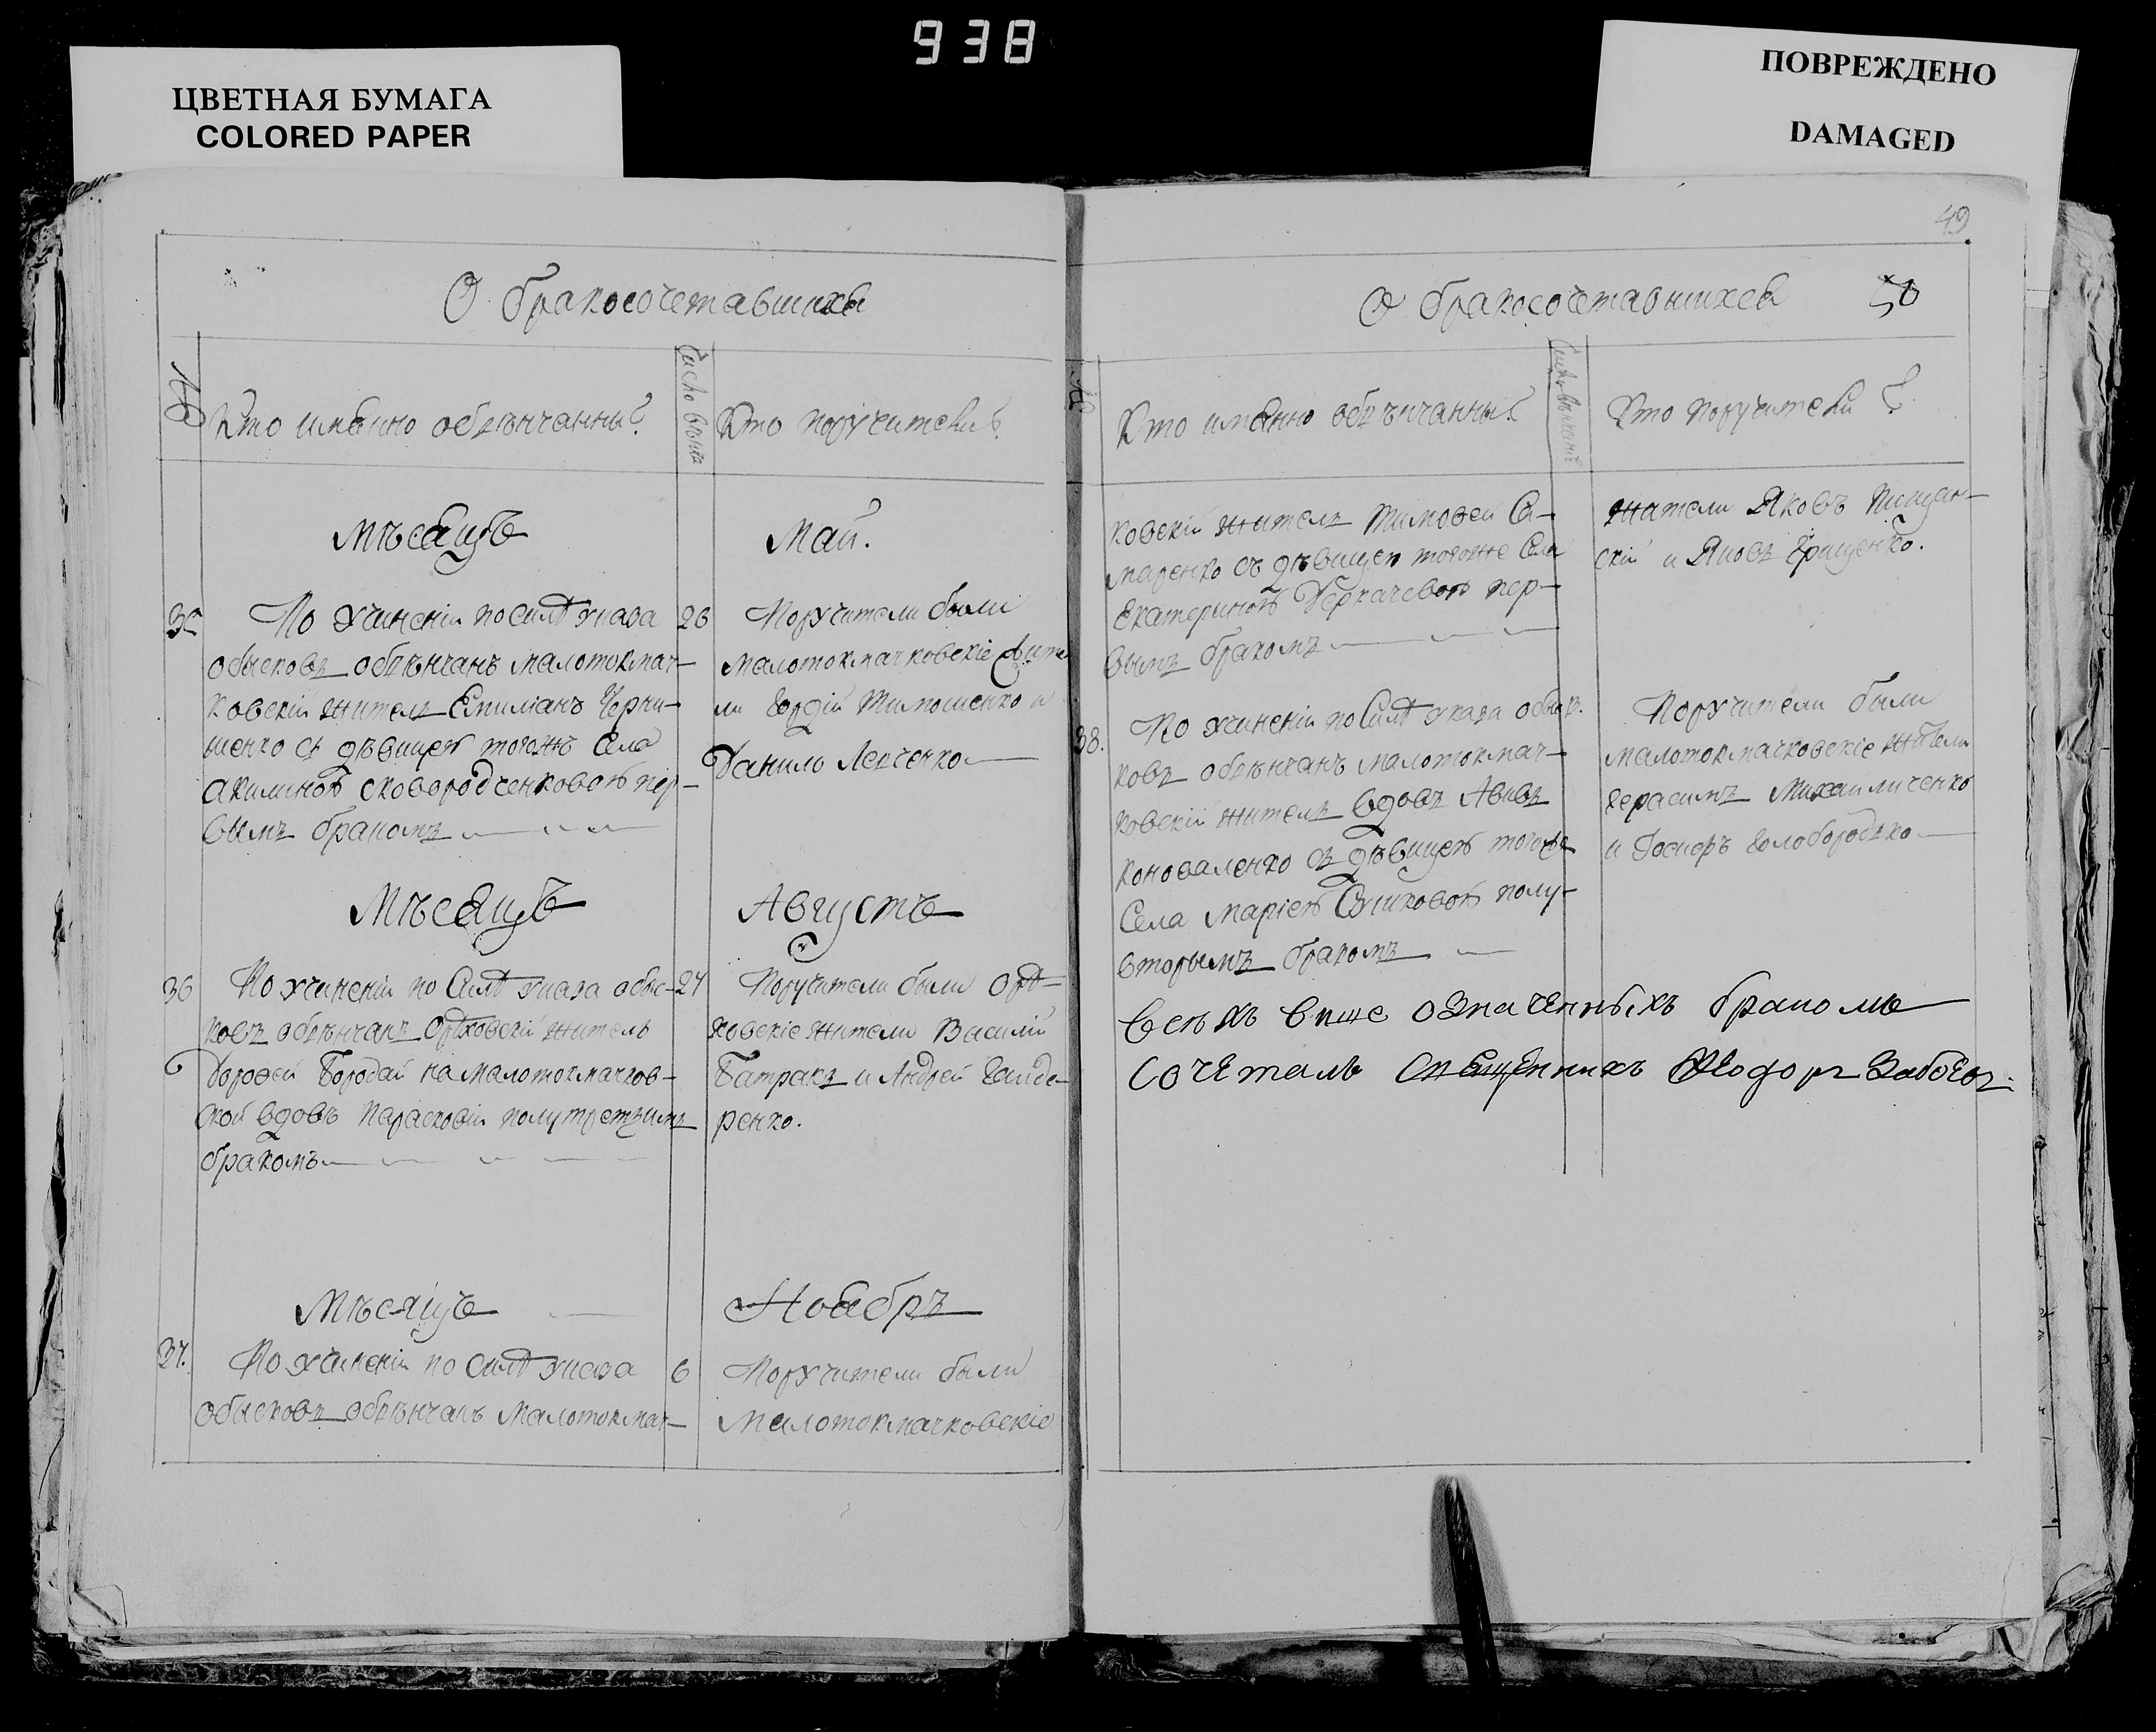 938
ЦВЕТНАЯ БУМАГА
COLORED PAPER
ПОВРЕЖДЕНО
DAMAGED
О бракосочетавшихся
№
Кто имянно обвѣнчанны?
Число
Кто поручители?
Мѣсяцъ
Май.
35
По учиненіи по силѣ указа
обысковъ обвѣнчанъ малотокмач-
ковскій житель Емиліанъ Черни-
шенко съ дѣвицею тогожъ села
Акилиною Сковородченковою пер-
вымъ бракомъ
26
Поручители были
малотокмачковскіе жите
ли Гордій Тимошенко и
Данило Левченко
Мѣсяцъ
Августъ
36
По учиненіи по силѣ указа обыс-
ковъ обвѣнчанъ Орѣховскій житель
Дорофей Бородай на малотокмачков-
ской вдовѣ Парасковіи полутретьимъ
бракомъ
27
Поручители были Орѣ-
ховскіе жители Василій
Батракъ и Андрей Гайде-
ренко.
Мѣсяцъ
Ноябрь
37.
По учиненіи по силѣ указа
обысковъ обвѣнчанъ малотокмач-
6
Поручители были
малотокмачковскіе
49
О бракосочетавшихся
50
№
Кто имянно обвѣнчанны?
Число
Кто поручители?
ковскій житель Тимофей Са-
маренко съ дѣвицею тогоже села
Екатериною Деркачевою пер-
вымъ бракомъ
жители Яковъ Пищан-
скій и Яковъ Грищенко.
38.
По учиненіи по силѣ указа обыс-
ковъ обвѣнчанъ малотокмач-
ковскій житель вдовъ Авивъ
Коноваленко съ дѣвицею тогоже
села Маріею полу-
вторымъ бракомъ
Поручители были
малотокмачковскіе жители
Герасимъ Михайличенко
и Іосифъ Голобородько
Всѣхъ више означенныхъ бракомъ
сочеталъ священникъ Феодоръ